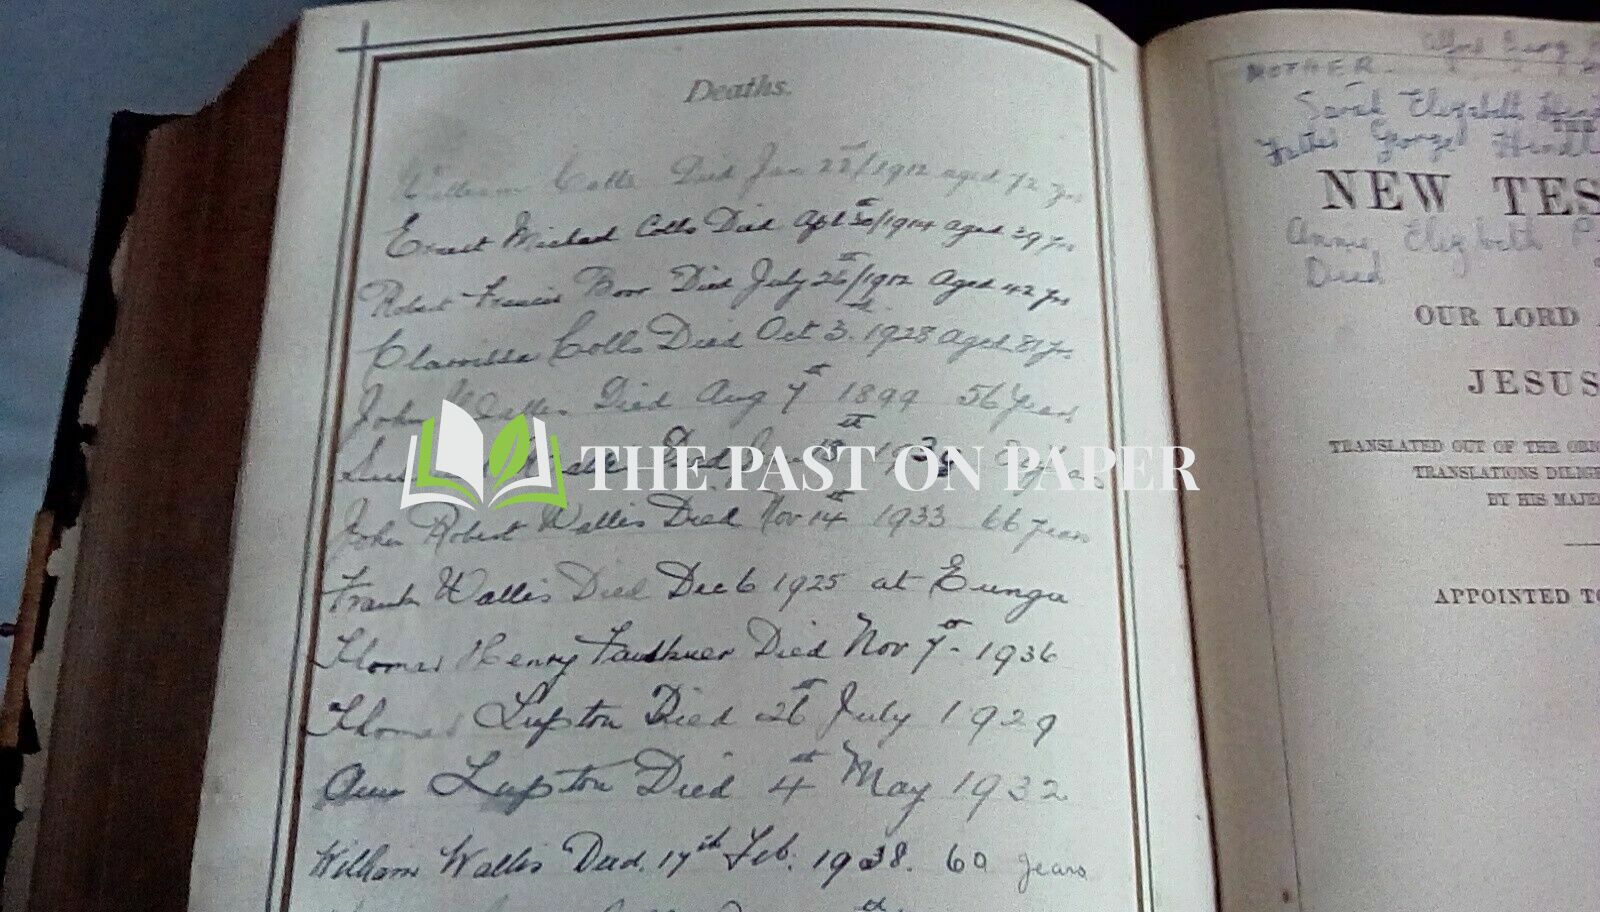 Deaths.
William Colls Died Jan 22nd/1912 aged 72 yrs
Ernest Michael Colls Died Apl 30th/1914 aged 39 yrs
Robert Francis Died July 26th/1912 Aged 42 yrs
Clarrissa Colls Died Oct 3rd. 1928 aged 81 yrs
John Wallis Died Aug 7th 1899 56 Years
Died 18th
John Robert Wallis Died Nov 14th 1933 66 years
Frank Wallis Died Dec 6 1925 at Eunga
Thomas Henry Faulkner Died Nov 7th - 1936
Thomas Lupton Died 26th July 1929
Ann Lupton Died 4th May 1932
William Wallis Died. 17th Feb. 1938. 60 years
THE PAST ON PAPER
MOTHER
Sarah Elizabeth
Father George
THE
NEW TES
Annie Elizabeth
Died
OUR LORD
JESUS
TRANSLATED OUT OF THE ORIG
TRANSLATIONS DILIGE
BY HIS MAJE
APPOINTED TO